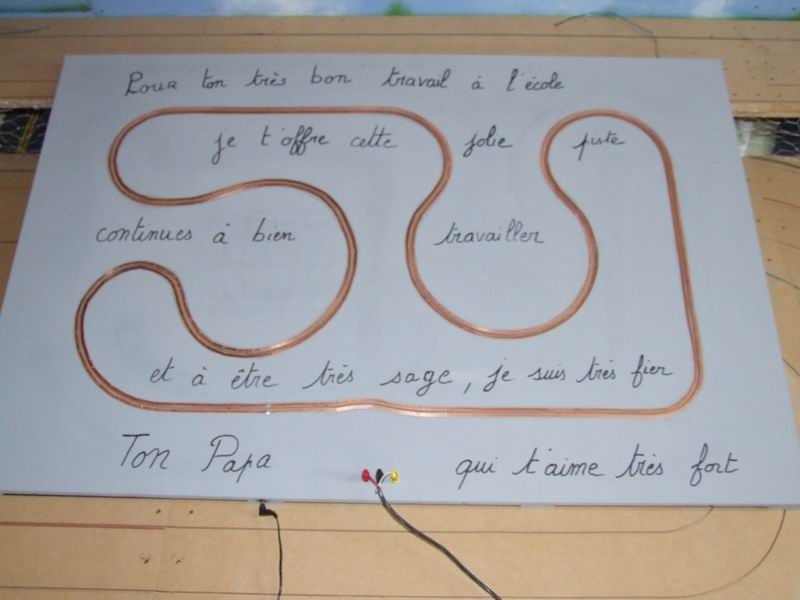 Pour ton très bon travail à l'école
je t'offre cette jolie piste
continues à bien travailler
et à être très sage, je suis très fier
Ton Papa qui t'aime très fort